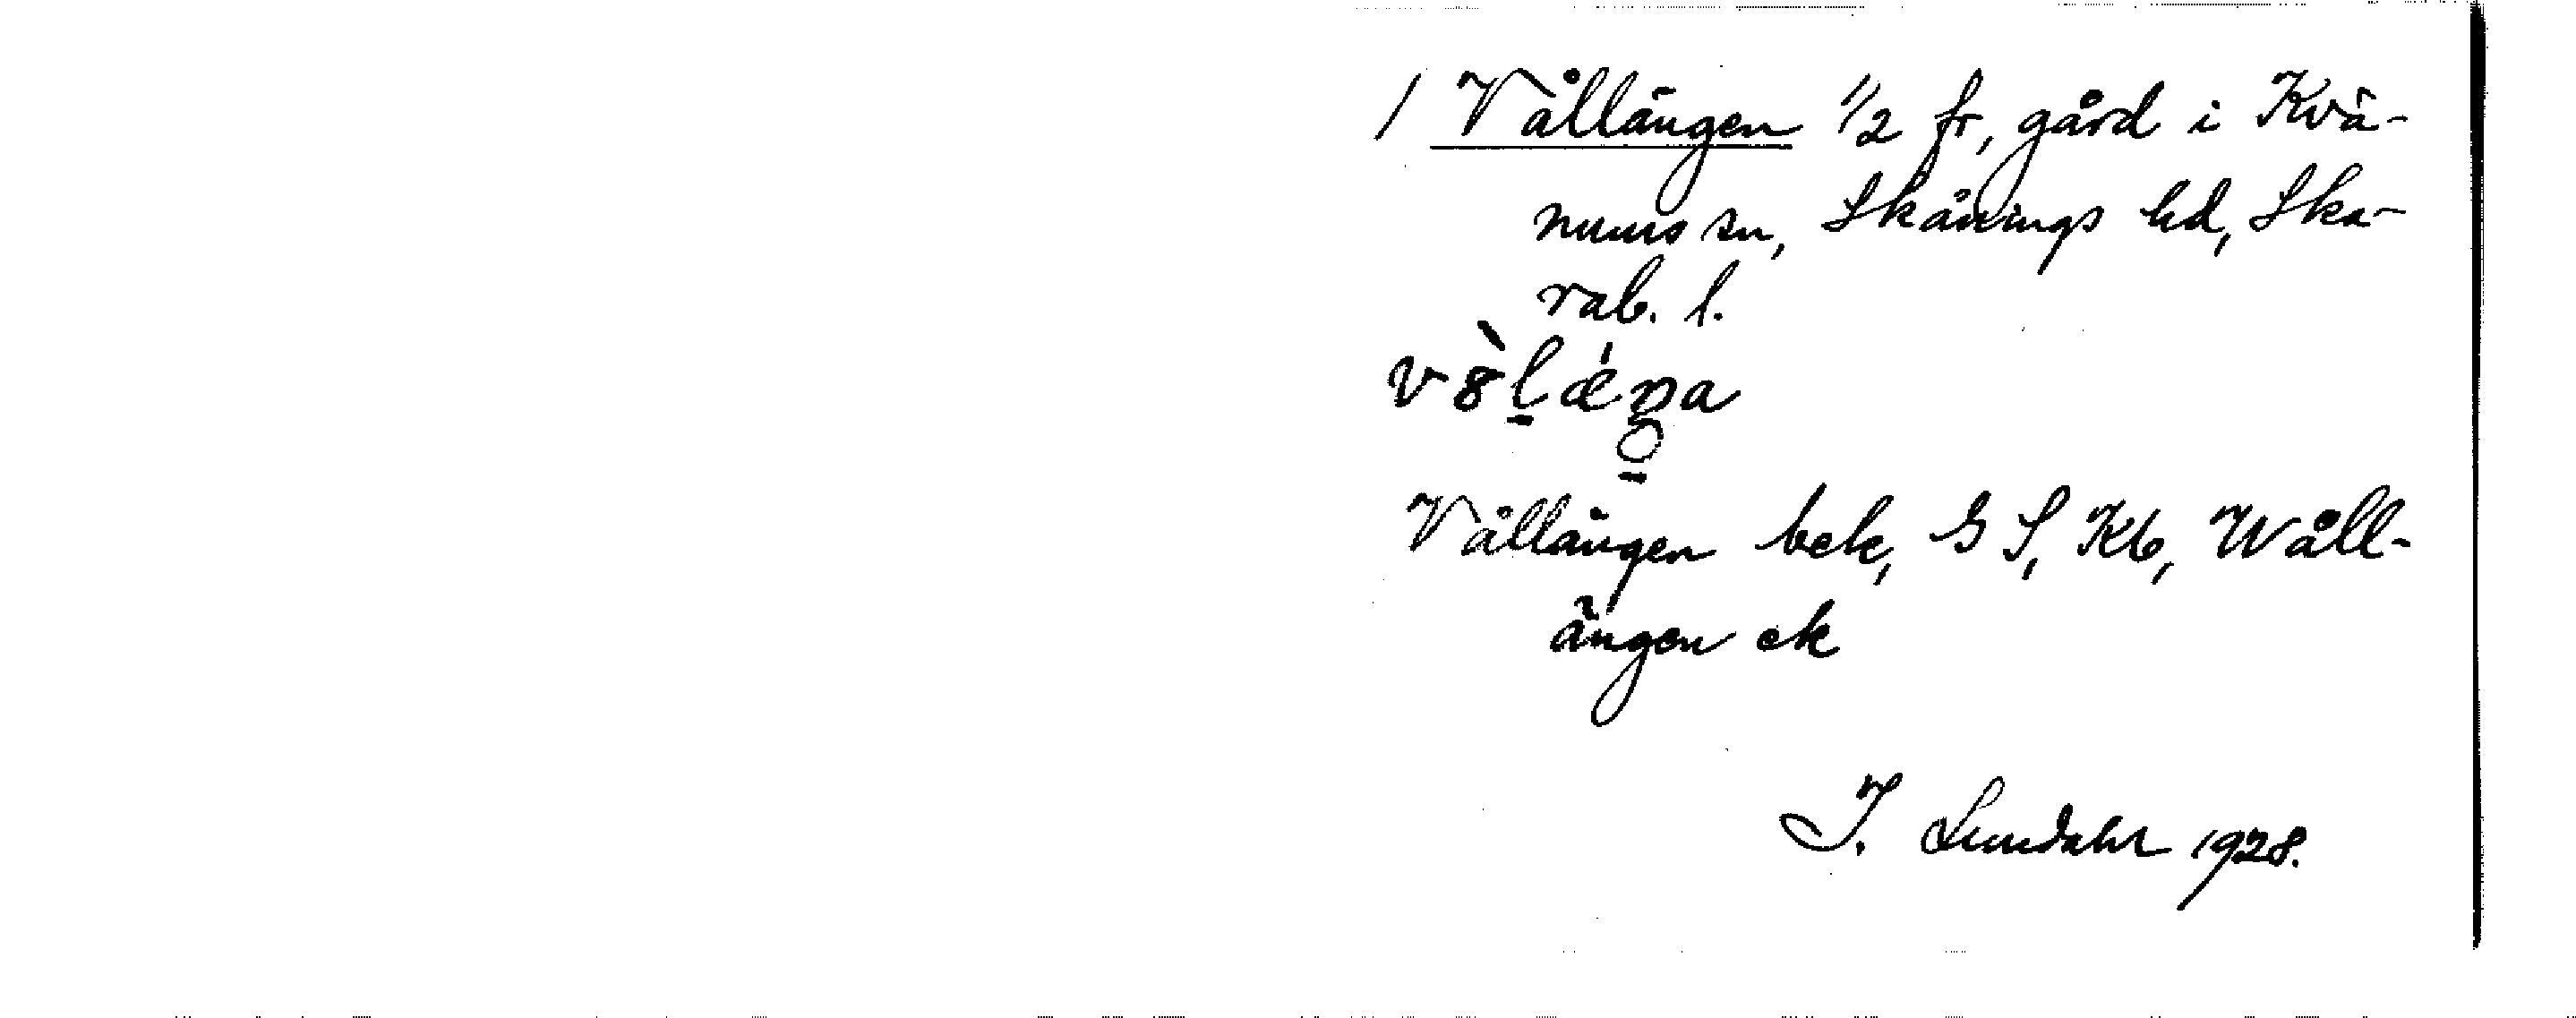 / Vållängen 1/2 fr, gård i Kvä-
nums sn, Skånings hd, Ska-
rab. l.
Vållängen bek, GS, Kb, Wåll-
ängen ek
I. Lundahl 1928.